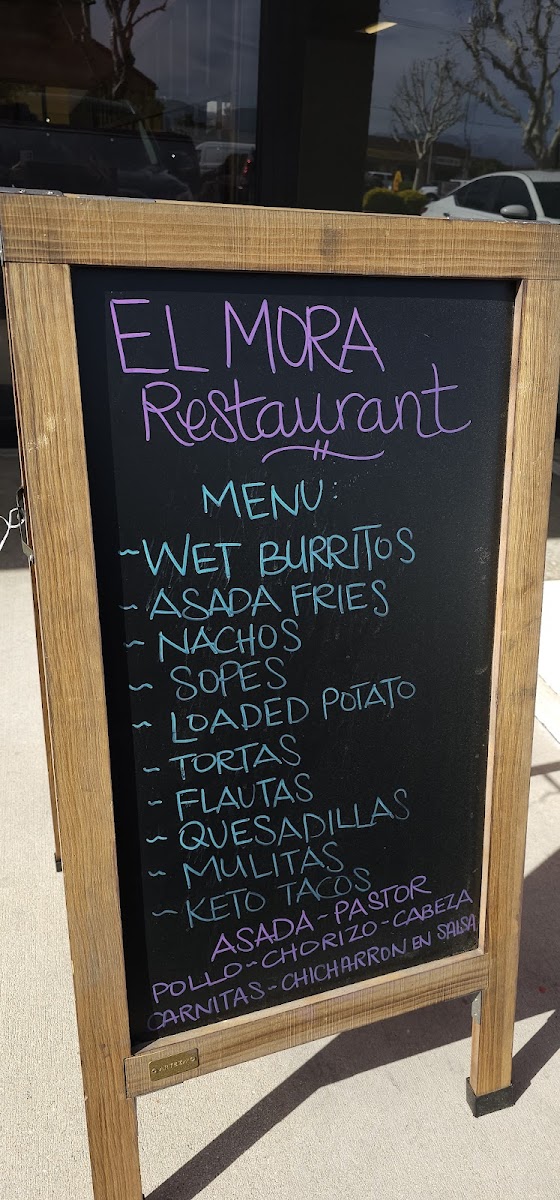 EL MORA
Restaurant
MENU:
~WET BURRITOS
~ASADA FRIES
~NACHOS
~SOPES
~LOADED POTATO
~TORTAS
~FLAUTAS
~QUESADILLAS
~MULITAS
~KETO TACOS
ASADA~PASTOR
POLLO~CHORIZO~CABEZA
CARNITAS~CHICHARRON EN SALSA